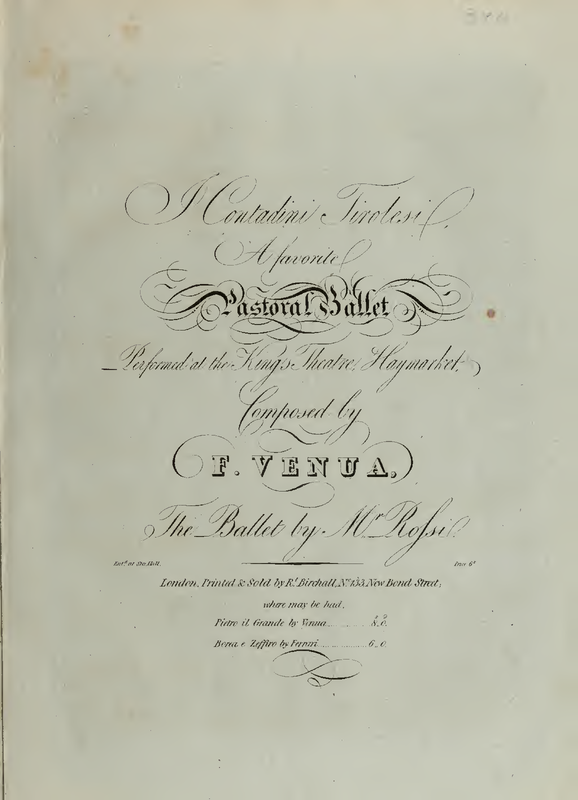 I Contadini Tirolesi,
A favorite
Pastoral Ballet
Performed at the King's Theatre, Haymarket,
Composed by
F. VENUA.
The Ballet by Mr. Rossi.
Ent.d at Sta. Hall. Price 6s
London, Printed & Sold by Rt. Birchall, No. 133, New Bond Street,
where may be had,
Pietro il Grande by Venua 8,,0.
Borea e Zeffiro by Ferrari 6,,0.